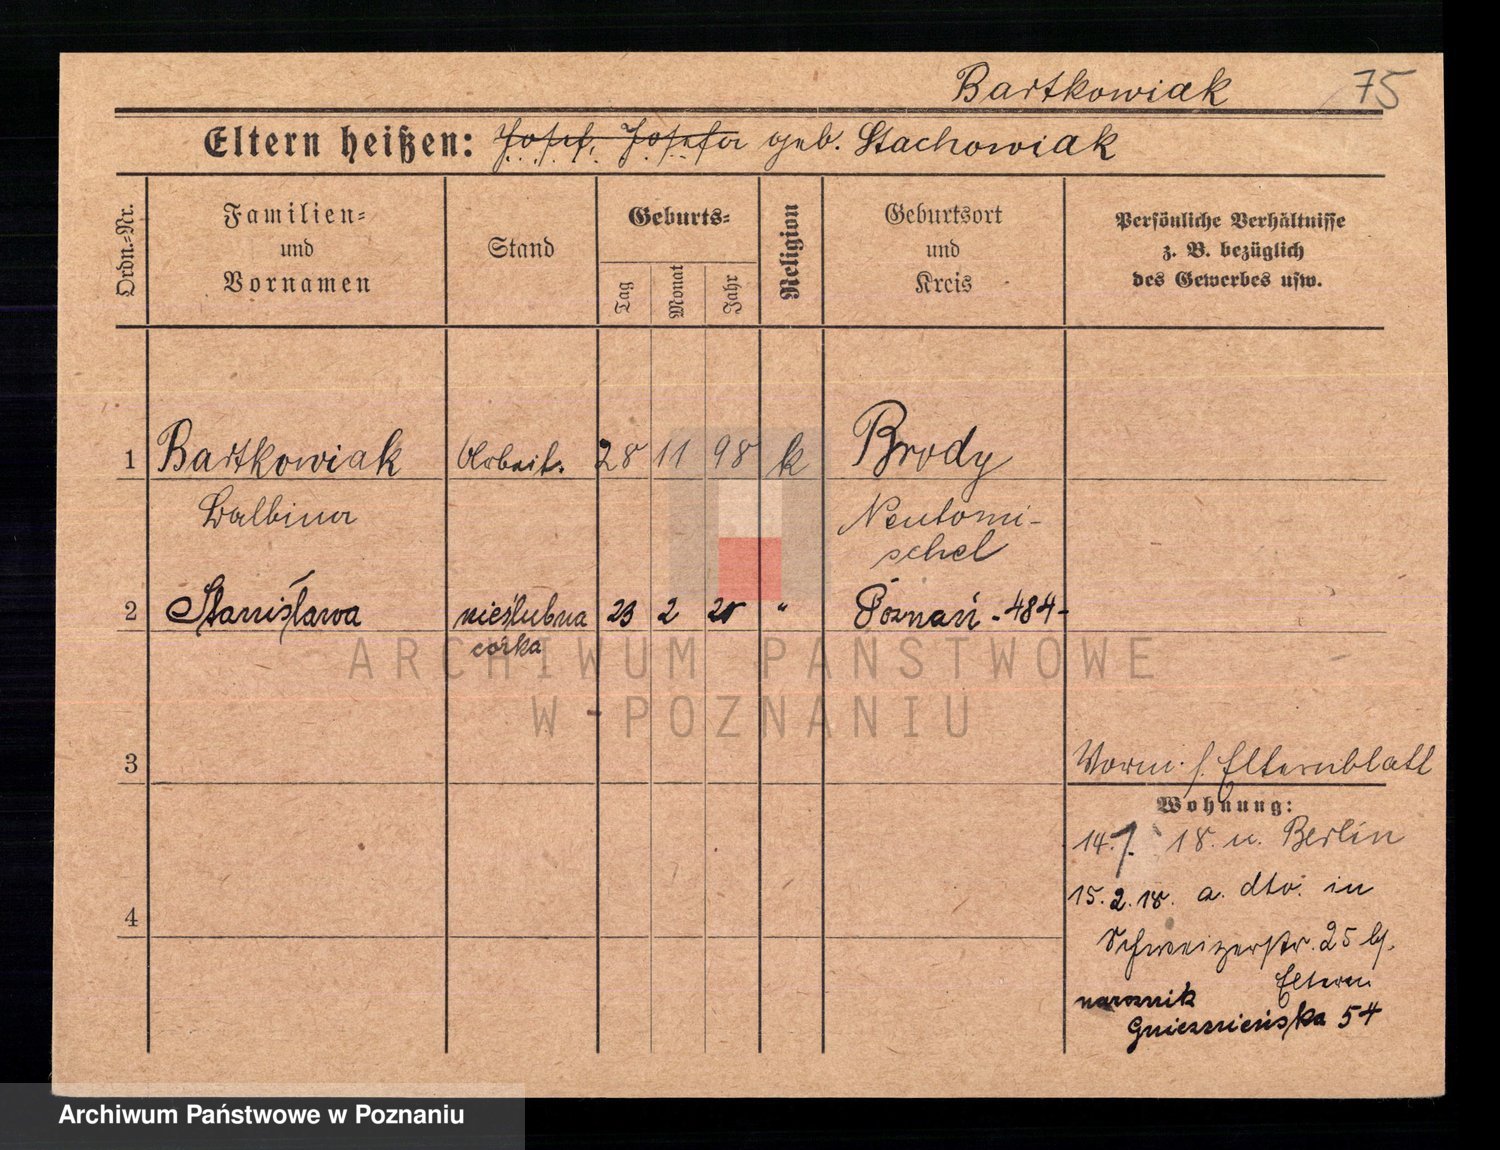 Bartkowiak 75
Eltern heißen: Josef. Josefa geb. Stachowiak
Ordn.=Nr.
Familien=
und
Vornamen
Stand
Geburts=
Tag
Monat
Jahr
Religion
Geburtsort
und
Kreis
Persönliche Verhältnisse
z. B. bezüglich
des Gewerbes usw.
1 Bartkowiak Arbeit. 28 11 98 k Brody
Balbina Neutomi-
schel
2 Stanisława nieślubna 23 2 20 " Poznań -484-
córka
ARCHIWUM PAŃSTWOWE
W POZNANIU
3 Vorm. s. Elternblatt
Wohnung:
14.7. 18. n. Berlin
15.2.18. a. dto. in
4
Schweizerstr. 25 b/.
Eltern
narożnik
Gnieźnieńska 54
Archiwum Państwowe w Poznaniu